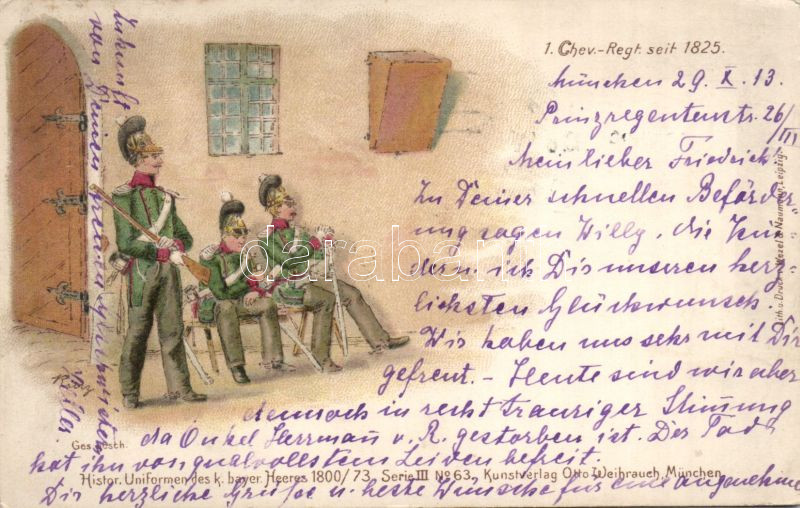 1. Chev.-Regt. seit 1825.
München 29. X. 13
Prinzregentenstr. 26/III
Mein lieber Friedrich!
Zu Deiner schnellen Beförder-
ung sagen Willy, die Kin-
der u. ich Dir unseren herz-
lichsten Glückwunsch.
Wir haben uns sehr mit Dir
gefreut. - Heute sind wir aber
dennoch in recht trauriger Stimmung
da Onkel Herrmañ v. R. gestorben ist. Der Tod
hat ihn von qualvollstem Leiden befreit.
Dir herzliche Grüße u. beste Wünsche für eine angenehme
Zukunft
von Deinen
Ges. gesch.
Histor. Uniformen des k. bayer. Heeres 1800/73, Serie III No 63, Kunstverlag Otto Weihrauch, München
Lith. u. Druck v. Wezel & Naumann, Leipzig
darabanth